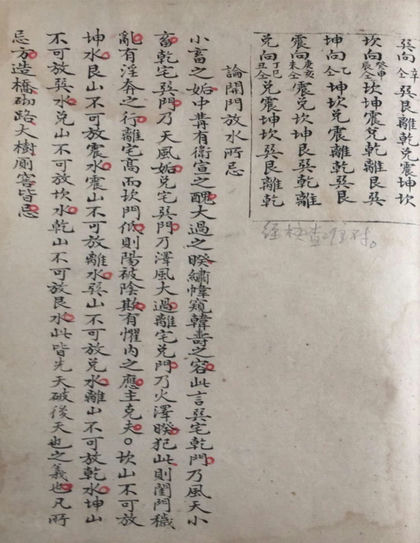 巽向辛仝巽艮離乾兌震坤坎
坎向癸申辰仝坎坤震兌乾離艮巽
坤向乙仝坤坎兌震離乾巽艮
震向庚亥未仝震兌坎坤艮巽乾離
兌向丁巳丑仝兌震坤坎巽艮離乾
经核查对。
論開門放水所忌
小畜之姤中冓有衒宣之醜大過之睽繡幃窺韓壽之容此言巽宅乾門乃風天小
畜乾宅巽門乃天風姤兌宅巽門乃澤風大過離宅兌門乃火澤睽犯此則閨門穢
亂有淫奔之行離宅高而坎門低則陽被陰欺有懼内之應主克夫。坎山不可放
坤水艮山不可放震水震山不可放離水巽山不可放兌水離山不可放乾水坤山
不可放巽水兌山不可放坎水乾山不可放艮水此皆先天破後天也之義也凡所
忌方造橋砌路大樹厠窖皆忌